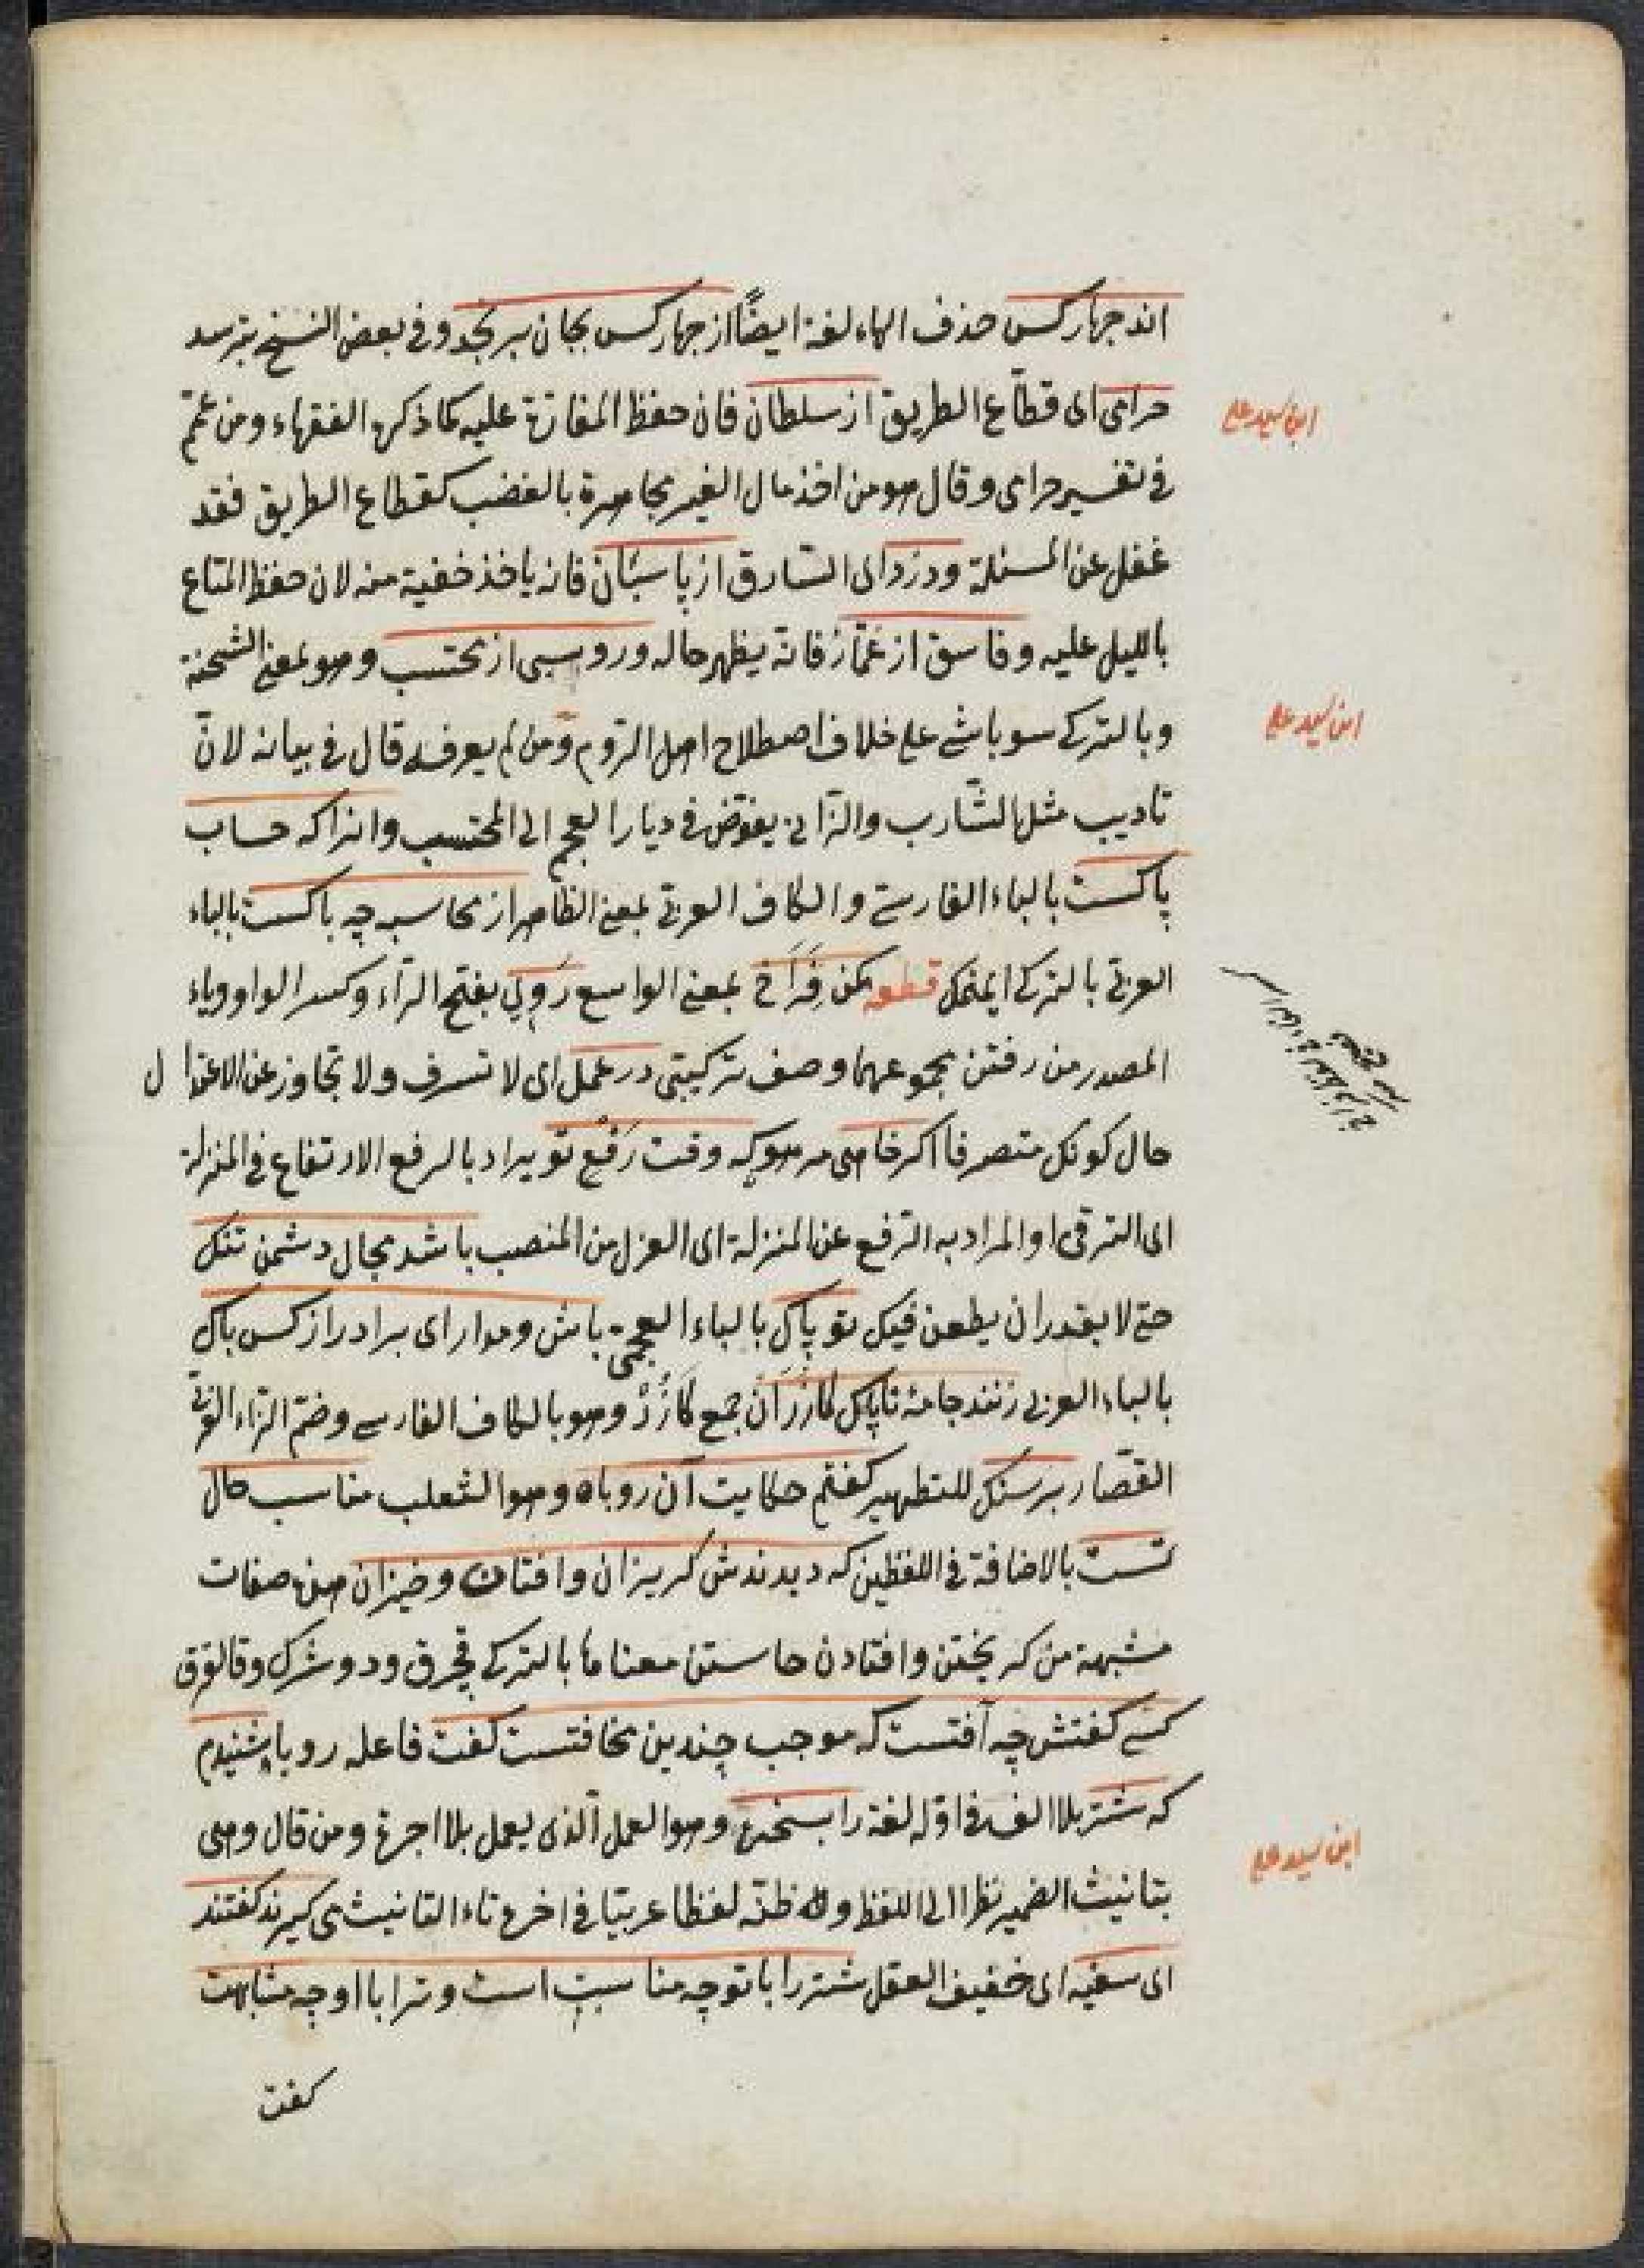 اند جهار كس حذف الهاء لغة ايضًا از جهار كس بجان برنجد وفى بعض النسخ بترسد
حرامى اى قطّاع الطريق از سلطان فان حفظ المفازة عليه كما ذكره الفقهاء ومن عمّم
فى تفسير حرامى وقال هو من اخذ مال الغير مجاهرة بالغضب كقطاع الطريق فقد
غفل عن المسئلة ودزد اى السّارق از پاسبان فانه ياخذ خفية منه لان حفظ المتاع
بالليل عليه وفاسق از غمّاز فانّه يظهر حاله وروسبى از محتسب وهو بمعنى الشحنة
وبالتركى سوباشى على خلاف اصطلاح اهل الرّوم ومن لم يعرفه قال فى بيانه لانّ
تاديب مثل الشّارب والزّانى يفوّض فى ديار العجم الى المحتسب وانرا كه حساب
پاكست بالباء الفارسى والكاف العربى بمعنى الظاهر از محاسبه چه باكست بالباء
العربى بالتركى ايمنمك قطعه مكن فَرَاخ بمعنى الواسع رَوِي بفتح الرّاء وكسر الواو وياء
المصدر من رفتن مجموعهما وصف تركيبى در عمل اى لا تسرف ولا تجاوز عن الاعتدال
حال كونك متصرفا اكر خاهى مر هوكه وقت رَفْعِ تو يراد بالرفع الارتفاع فى المنزلة
اى الترقى او المراد به الترفع عن المنزلة اى العزل من المنصب باشد مجال دشمن تنك
حتى لا يقدر ان يطعن فيك تو پاك بالباء العجمى باش ومدار اى برادر از كس باك
بالباء العربى زنند جامۀ ناپاك كَازُرَان جمع كَازُرْ وهو بالكاف الفارسى وضم الزاء العربى
القصّار بر سنك للتطهير كفتم حكايت آن روباه وهو الثعلب مناسب حال
تست بالاضافة فى اللفظين كه ديدندش كريزان وافتان وخيزان هن صفات
مشبهة من كريختن وافتادن خاستن معناها بالتركى قچرق ودوشرك وقالقرق
كسى كفتش چه آفتست كه موجب چندين مخافتست كفت فاعله روباه شنيدم
كه شتر بلا الف فى اوّله لغة را بسخره وهو العمل الّذى يعمل بلا اجرة ومن قال وهى
بتانيث الضمير نظرا الى اللفظ ظنّه لفظا عربيّا فى اخره تاء التانيث مى كيرند كفتند
اى سفيه اى خفيف العقل شتر را باتو چه مناسبت است وترا با او چه مشابهت
كفت
ابن سيد على
ابن سيد على
ابن سيد على